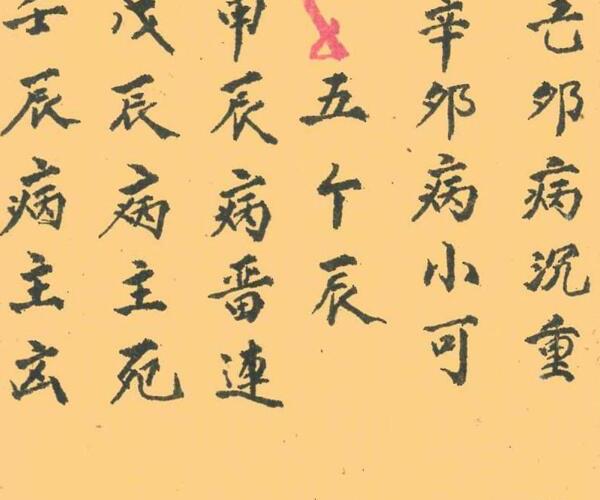 己卯病沉重
辛卯病小可
五个辰
甲辰病留連
戊辰病主死
壬辰病主凶